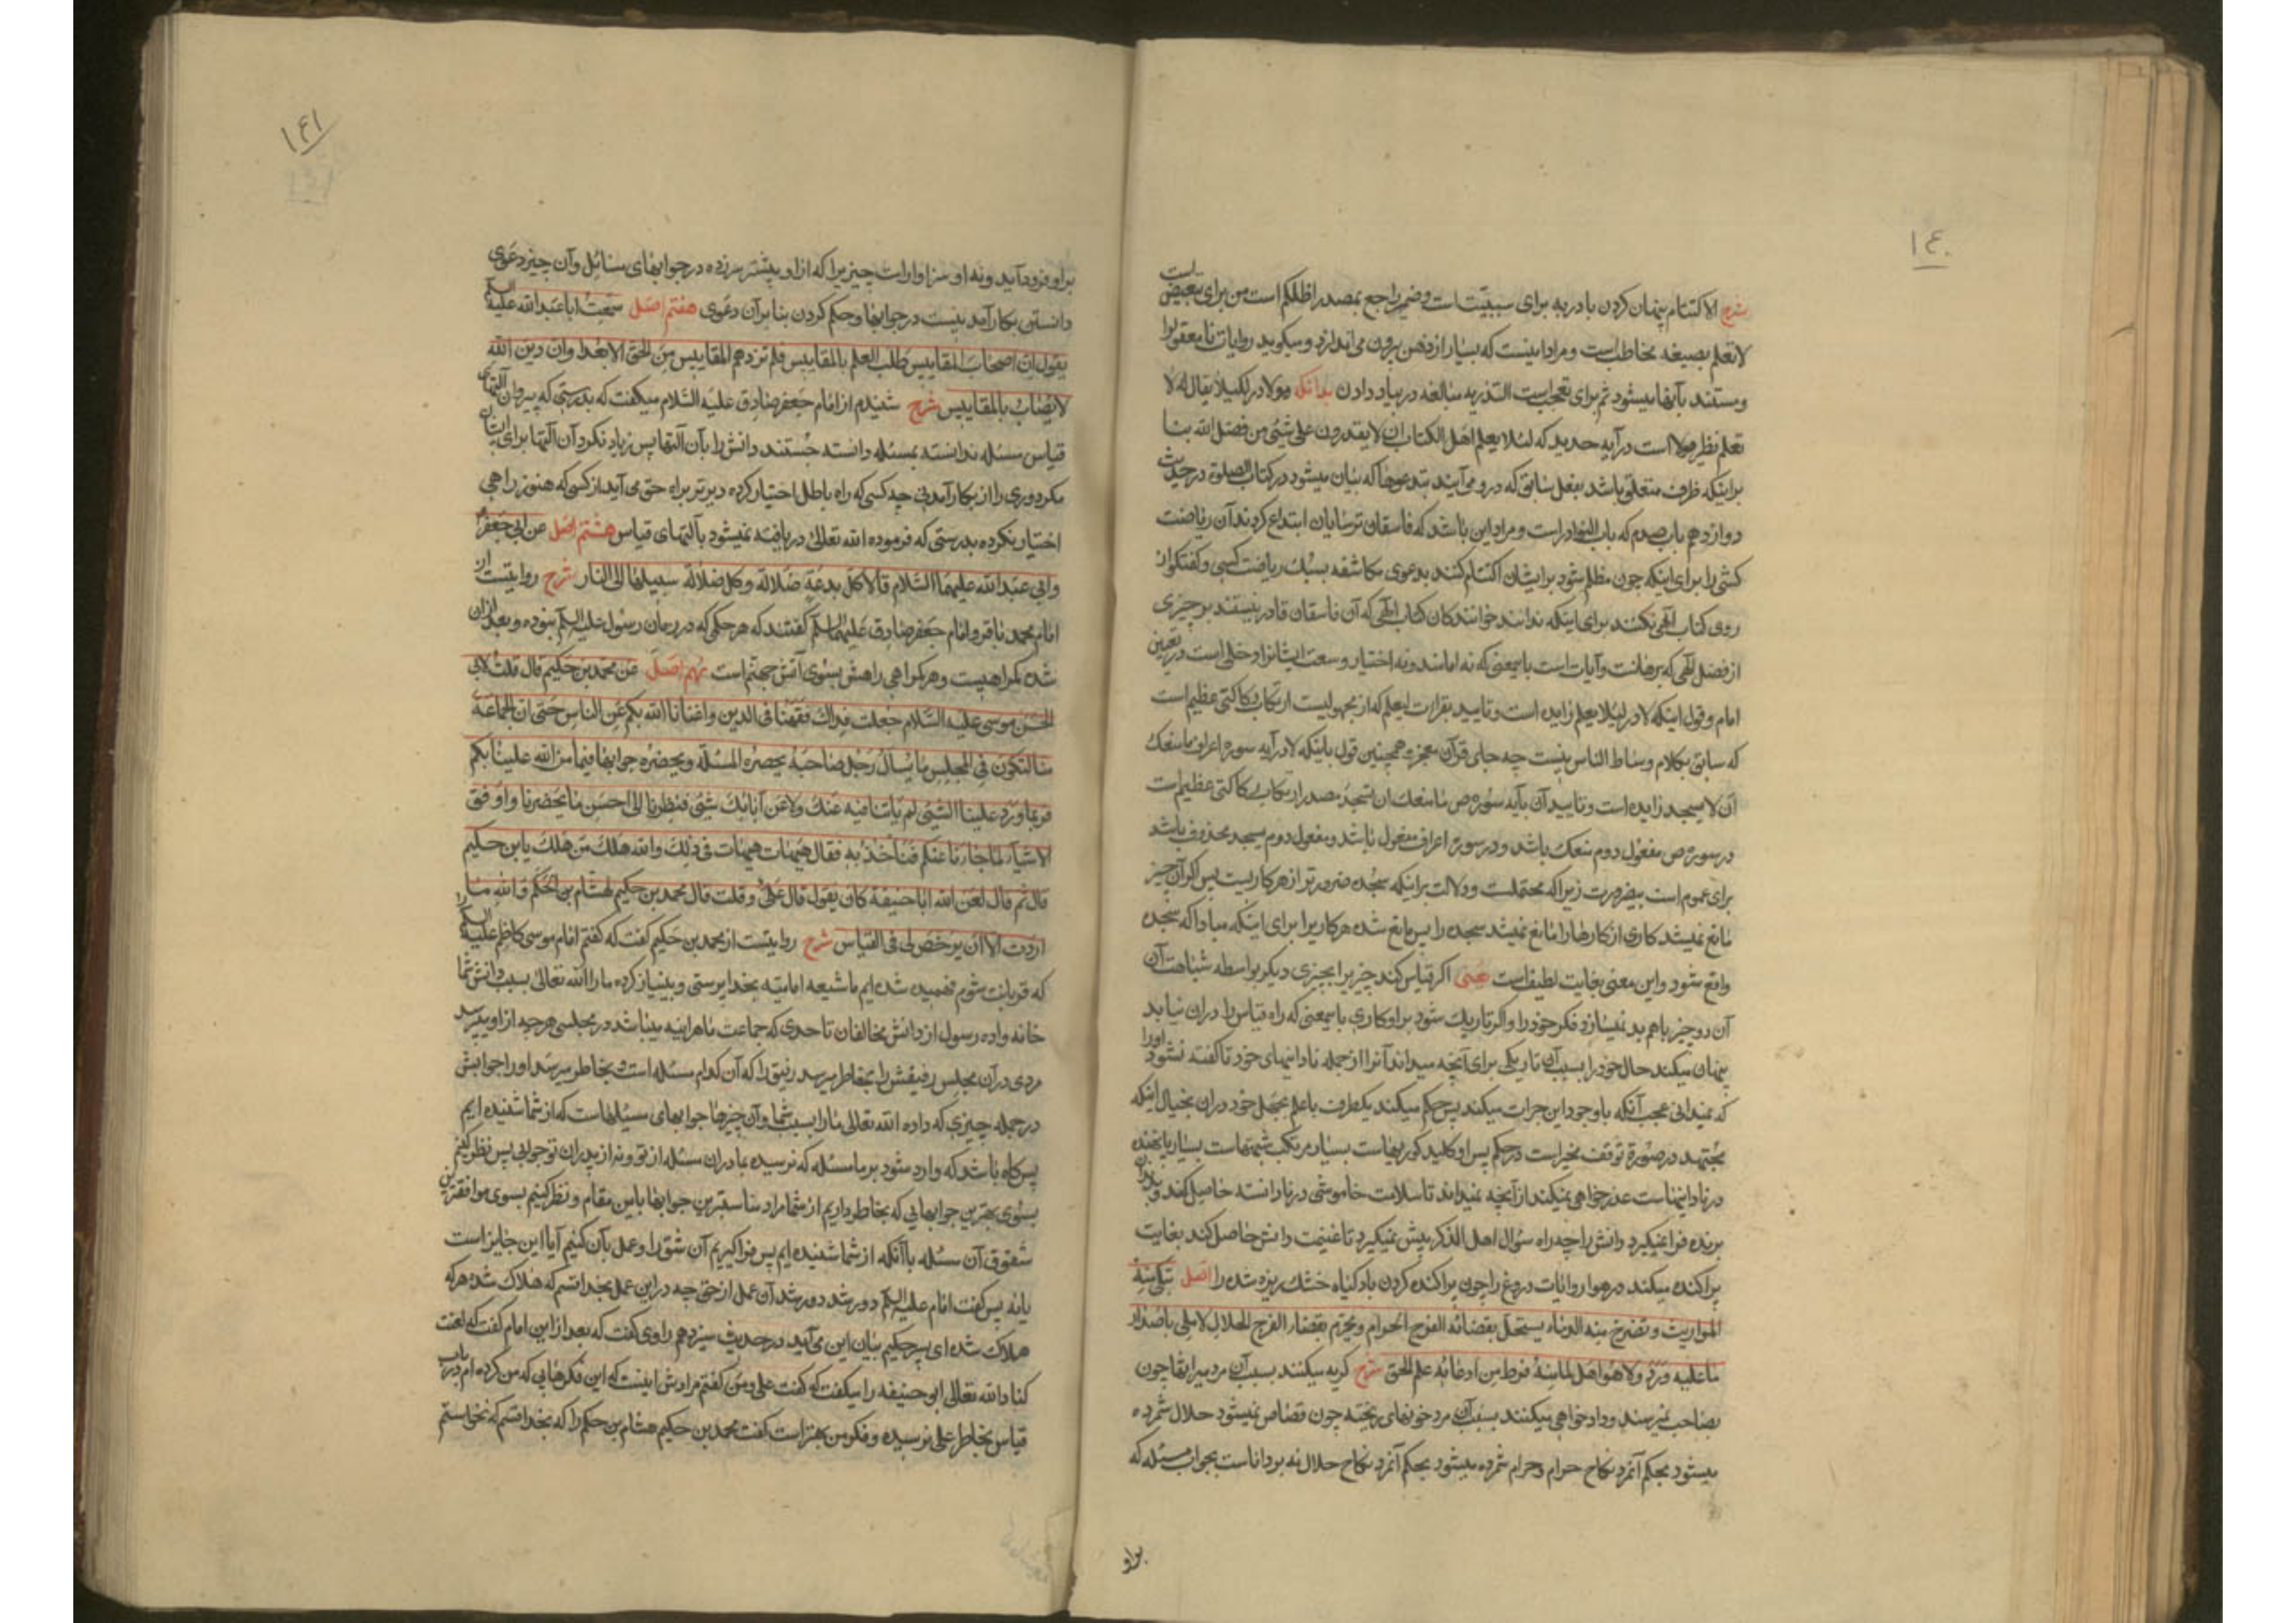 ۱۴۰
شرح الاکتتام پنهان کردن با در به برای سببیّت است و ضمیر راجع بمصدر اظلم است من برای تبعیض است
لا تعلم بصیغه مخاطب است و مراد اینست که بسیار از ذهن بیرون می اندازد و میگوید روایات نامعقول را
ومستند بآنها میشود ثم برای تعجب است التذریه مبالغه در بباد دادن بدانکه مولا در لکیلا یقال له لا
تعلم نظیر مولا است در آیه حدید که لئلا یعلم اهل الکتاب ان لا یقدرون علی شئ من فضل الله بنا
براینکه ظرف متعلق باشد بفعل سابق که در و می آیند بتدعوها که بیان میشود در کتاب الصلوة در حدیث
دوازدهم باب صدم که باب النوادر است و مراد این باشد که فاسقان ترسایان ابتداع کردند آن ریاضت
کشی را برای اینکه چون مظلم شود برایشان اکتتام کنند بدعوی مکاشفه بسبب ریاضت کسی و گفتگو از
روی کتاب الهی نکنند برای اینکه ندانند خوانندکان کتاب الهی که آن فاسقان قادر نیستند بر چیزی
از فضل الهی که برهانت و آیات است باینمعنی که نه امامند و نه اختیار و سعت ایشانرا دخلی است در تعیین
امام و قول اینکه لا در لئلا یعلم زایده است و تایید بقرارت لیعلم که از مجهولیست ارتکاب رکاکتی عظیم است
که سابق بکلام وساط الناس نیست چه جای قرآن معجزه همچنین قول باینکه لا در آیه سوره اعراف ما منعک
ان لا تسجد زایده است و تایید آن بآیه سوره ص ما منعک ان تسجد مصدر ارتکاب رکاکتی عظیم است
در سوره ص مفعول دوم منعک باشد و در سورۀ اعراف مفعول باشد و مفعول دوم تسجد محذوف باشد
برای عموم است بیضرورت زیرا که محتملست و دلالت بر اینکه سجده ضرورتر از هر کاریست پس اگر آن چیز
مانع نمیشد کاری از کارها را مانع نمیشد سجده را پس مانع شده هر کاریرا برای اینکه مبادا که سجده
واقع شود و این معنی بغایت لطیف است یعنی اگر قیاس کند چیزیرا بچیزی دیگر بواسطه شباهت آن
آن دو چیز باهم بد نمیسازد فکر خود را و اگر تاریک شود بر او کاری باینمعنی که راه قیاس را در آن نیابد
پنهان میکند حال خود را بسبب آن تاریکی برای آنچه میداند آنرا از جمله نادانیهای خود تا گفته نشود او را
که نمیدانی عجب آنکه باوجود این جرات میکند پس حکم میکند یکطرف با علم بجهل خود در آن بخیال اینکه
مجتهد در صورة توقف مخیر است در حکم پس او کلید کوریهاست بسیار مرتکب شبهتهاست بسیار پا نهنده
در نادانیهاست عذرخواهی نمیکند از آنچه نمیداند تا سلامت خاموشی در نادانسته حاصل کند و بدندان
برنده فرا نمیگیرد دانش را چه راه سؤال اهل الذکر پیش نمیگیرد تا غنیمت دانش حاصل کند بغایت
پراکنده میکند در هوا روایات دروغ را چون پراکنده کردن باد گیاه خشک ریزه شده را اصل تبکی منه
المواریث و تصرخ منه الدماء یستحل بقضائه الفرج الحرام ویحرم بقضائه الفرج الحلال لا ملی باصدار
ما علیه ورد ولا هو اهل لما منه فرط من ادعائه علم الحق شرح گریه میکنند بسبب آن مرد میراثها چون
بصاحب نمیرسند و دادخواهی میکنند بسبب آن مرد خونهای ریخته چون قصاص نمیشود حلال شمرده
میشود بحکم آنمرد نکاح حرام و حرام شمرده میشود بحکم آنمرد نکاح حلال نه بر داناست بجواب مسئله که
براو
۱۴۱
براو فرود آمد و نه او سزاوار است چیزیرا که از او پیشتر سرزده در جوابهای مسائل و آن چیز دعوی
دانستن بکارآمد نیست در جوابها و حکم کردن بنا بر آن دعوی هفتم اصل سمعت ابا عبد الله علیه السلم
یقول ان اصحاب المقاییس طلب العلم بالمقاییس فلم تزدهم المقاییس من الحق الا بعدا وان دین الله
لا یصاب بالمقاییس شرح شنیدم از امام جعفر صادق علیه السلام میگفت که بدرستی که پیروان آلتهای
قیاس مسئله ندانسته بمسئله دانسته جستند دانش را بآن آلتها پس زیاد نکرد آن آلتها برای ایشان
مگر دوری را از بکارآمدنی چه کسی که راه باطل اختیار کرده دیرتر براه حق می آید از کسی که هنوز راهی
اختیار نکرده بدرستی که فرموده الله تعالی دریافته نمیشود بآلتهای قیاس هشتم اصل عن ابی جعفر
وابی عبد الله علیهما السلام قالا کل بدعة ضلالة وکل ضلالة سبیلها الی النار شرح روایتست از
امام محمد باقر و امام جعفر صادق علیهما السلم گفتند که هر حکمی که در زمان رسول علیه السلم نبوده و بعد از آن
شده گمراهیست و هر گمراهی راهش بسوی آتش جهنم است نهم اصل عن محمد بن حکیم قال قلت لابی
الحسن موسی علیه السلام جعلت فداک فقهنا فی الدین واغنانا الله بکم عن الناس حتی ان الجماعة
منا لتکون فی المجلس ما یسال رجل صاحبه یحضره المسئلة ویحضره جوابها فیما من الله علینا بکم
فربما ورد علینا الشئ لم یاتنا فیه عنک ولا عن آبائک شئ فنظرنا الی احسن ما یحضرنا واوفق
الاشیاء لما جاءنا عنکم فناخذ به فقال هیهات هیهات فی ذلک والله هلک من هلک یابن حکیم
قال ثم قال لعن الله ابا حنیفة کان یقول قال علی وقلت قال محمد بن حکیم لهشام بن الحکم والله ما
اردت الا ان یرخص لی فی القیاس شرح روایتست از محمد بن حکیم گفت که گفتم امام موسی کاظم علیه السلم را
که قربانت شوم فهمیده شده ایم ما شیعه امامیه بخداپرستی و بینیاز کرده ما را الله تعالی بسبب دانش شما
خانه واده رسول از دانش مخالفان تا حدی که جماعت ما هر اینه میباشد در مجلسی هر چه از او بپرسد
مردی در آن مجلس رفیقش را بخاطر میرسد رفیق را که آن کدام مسئله است و بخاطر میرسد او را جوابش
در جمله چیزی که داده الله تعالی ما را بسبب شما و آن چیزها جوابهای مسئلهاست که از شما شنیده ایم
پس گاه باشد که وارد شود بر ما مسئله که نرسیده بما در آن مسئله از تو و نه از پدران تو جوابی پس نظر کنیم
بسوی بهترین جوابهایی که بخاطر داریم از شما مراد مناسبترین جوابها باین مقام و نظر کنیم بسوی موافقترین
شقوق آن مسئله با آنکه از شما شنیده ایم پس فرا گیریم آن شق را و عمل بآن کنیم آیا این جایز است
یا نه پس گفت امام علیه السلم دور شد دور شد آن عمل از حق چه در این عمل بخدا قسم که هلاک شد هر که
هلاک شد ای پسر حکیم بیان این می آید در حدیث سیزدهم راوی گفت که بعد از این امام گفت که لعنت
کناد الله تعالی ابو حنیفه را میگفت که گفت علی و من گفتم مرادش اینست که این فکرهایی که من کرده ام در باب
قیاس بخاطر علی نرسیده و فکر من بهتر است گفت محمد بن حکیم هشام بن حکم را که بخدا قسم که نخواستم